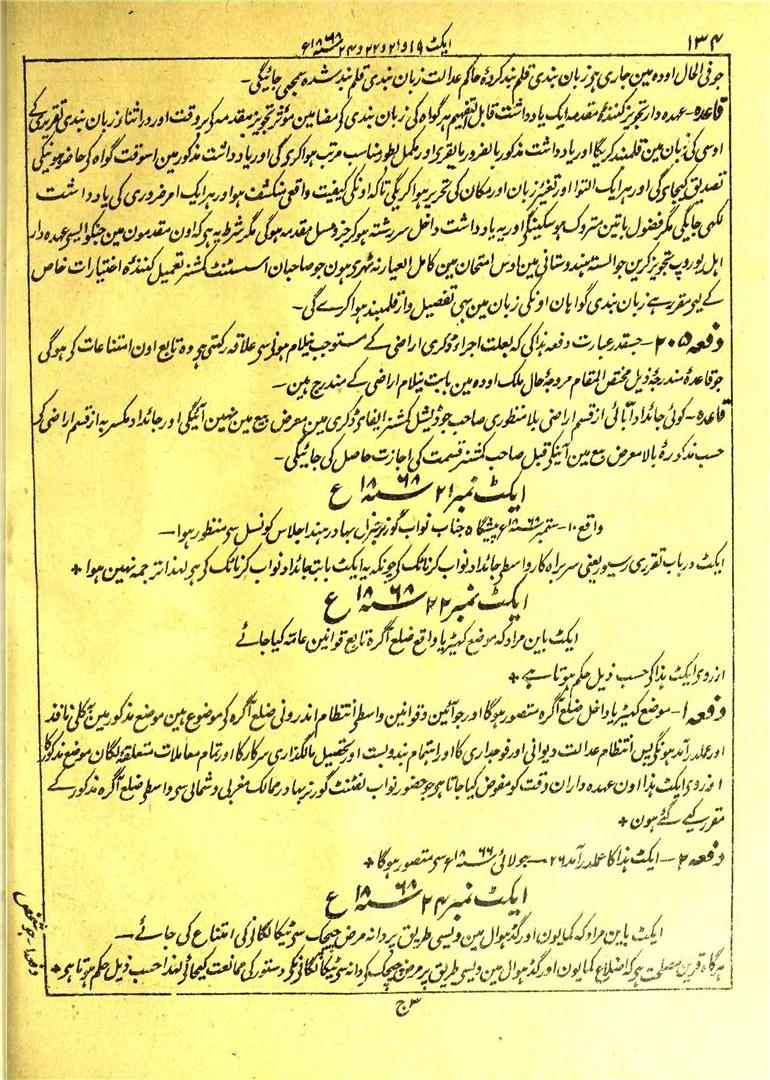 ۱۳۴
ایکٹ ۱۹ و ۲۱ و ۲۲ و ۲۴ سنہ ۱۸۶۸ع
جو فی الحال اودہ مین جاری ہی زبان بندی قلمبند کردۂ حاکم عدالت زبان بندی قلمبند شدہ سمجھی جائیگی۔
قاعدہ۔ عہدہ دار تجویز کنندۂ مقدمہ ایک یادداشت قابل التفہیم ہر گواہ کی زبان بندی کی مضامین مؤثر تجویز مقدمہ کی بروقت اور در اثناء زبان بندی تقریری کے
اوسی کی زبان مین قلمبند کریگا اور یادداشت مذکور بالضرور بالقریر اور مکمل بطور مناسب مرتب ہوا کریگی اور یادداشت مذکور مین اسوقت گواہ کی حاضر ہونیکی
تصدیق کیجائی گی اور ہر ایک التوا اور تغیر زبان اور مکان کی تحریر ہوا کریگی تاکہ اونکی کیفیت واقعی منکشف ہو اور ہر ایک امر ضروری کی یادداشت
لکھی جائیگی مگر فضول باتین متروک ہو سکینگی اور یہ یادداشت داخل سررشتہ ہو کر جزو مسل مقدمہ ہوگی مگر شرط یہ ہی کہ اون مقدمون مین جنکو ایسی عہدہ دار
اہل یوروپ تجویز کرین جو السنہ ہندوستانی مین اوس امتحان مین کامل العیار نہ ٹھری ہون جو صاحبان اسسٹنٹ کمشنر تعمیل کنندہ اختیارات خاص
کے لیی مقرر ہے زبان بندی گواہان اونکی زبان مین بہی تفصیل وار قلمبند ہوا کرے گی۔
دفعہ ۲۰۵۔ جسقدر عبارت دفعہ ہذا کی کہ بعلت اجراء ڈکری اراضی کے مستوجب نیلام ہونی سی علاقہ رکہتی ہی وہ تابع اون امتناعات کی ہوگی
جو قاعدۂ مندرجۂ ذیل مختص المقام مروجۂ حال ملک اودہ مین بابت نیلام اراضی کے مندرج ہین۔
قاعدہ۔ کوئی جائداد آبائی از قسم اراضی بلا منظوری صاحب جوڈیشل کمشنر ایفای ڈکری مین معرض بیع مین نہین آئیگی اور جائداد مکسوبہ از قسم اراضی کی
حسب مذکورۂ بالا معرض بیع مین آنیکی قبل صاحب کمشنر قسمت کی اجازت حاصل کی جائیگی۔
ایکٹ نمبر ۲۱ سنہ ۱۸۶۸ع
واقع ۱۰۔ ستمبر سنہ ۱۸۶۸ع پیشگاہ جناب نواب گورنر جنرل بہادر ہند اجلاس کونسل سی منظور ہوا۔
ایکٹ درباب تقرری رسیور یعنی سربراہ کار واسطی جائداد نواب کرناٹک کی چونکہ یہ ایکٹ بابت جائداد نواب کرناٹک کی ہی لہذا ترجمہ نہین ہوا *
ایکٹ نمبر ۲۲ سنہ ۱۸۶۸ع
ایکٹ باین مراد کہ موضع کہیڑیا واقع ضلع آگرہ تابع قوانین عامہ کیا جائے
از روی ایکٹ ہذا کی حسب ذیل حکم ہوتا ہے *
دفعہ ۱۔ موضع کہیڑیا داخل ضلع آگرہ متصور ہوگا اور جو آئین و قوانین واسطی انتظام اندرونی ضلع آگرہ کی موضوع ہین موضع مذکور مین بہی کلی نافذ
اور عملدرآمد ہونگی پس انتظام عدالت دیوانی اور فوجداری کا اور اہتمام بندوبست اور تحصیل مالگذاری سرکار کا اور تمام معاملات متعلقہ لگان موضع مذکور کا
از روی ایکٹ ہذا اون عہدہ داران وقت کو مفوض کیا جاتا ہی جو حضور نواب لفٹنٹ گورنر بہادر ممالک مغربی و شمالی سی واسطی ضلع آگرہ مذکور کے
مقرر کیے گئے ہون *
دفعہ ۲۔ ایکٹ ہذا کا عملدرآمد ۲۶۔ جولائی سنہ ۱۸۶۶ع سی متصور ہوگا *
ایکٹ نمبر ۲۴ سنہ ۱۸۶۸ع
ایکٹ باین مراد کہ کمایون اور گڈہوال مین دیسی طریق پر دانہ مرض چیچک سی ٹیکا لگانی کی امتناع کی جائے۔
ہرگاہ قرین مصلحت ہی کہ اضلاع کمایون اور گڈہوال مین دیسی طریق پر مرض چیچک کی دانہ سی ٹیکا لگانیکی دستور کی ممانعت کیجائی لہذا حسب ذیل حکم ہوتا ہی *
ج ۳